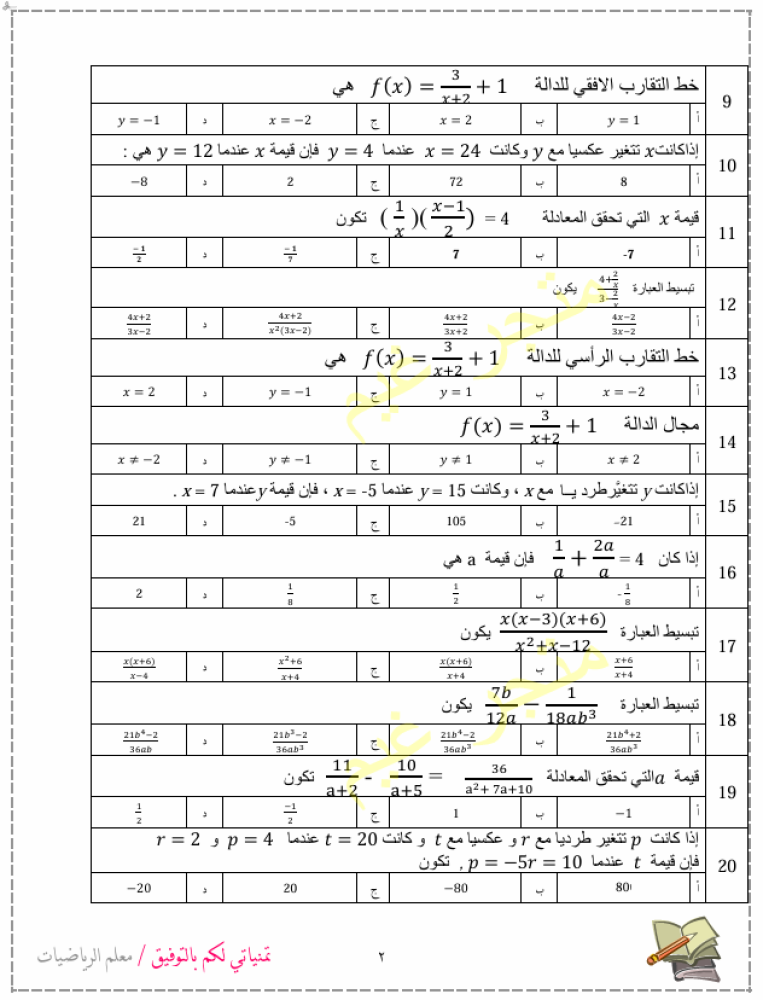 9 خط التقارب الافقي للدالة f(x) = 3/(x+2) + 1 هي
أ y = 1 ب x = 2 ج x = −2 د y = −1
10 إذاكانت x تتغير عكسيا مع y وكانت x = 24 عندما y = 4 فإن قيمة x عندما y = 12 هي :
أ 8 ب 72 ج 2 د −8
11 قيمة x التي تحقق المعادلة (1/x)((x−1)/2) = 4 تكون
أ -7 ب 7 ج −1/7 د −1/2
12 تبسيط العبارة (4+2/x)/(3−2/x) يكون
أ (4x−2)/(3x−2) ب (4x+2)/(3x+2) ج (4x+2)/(x²(3x−2)) د (4x+2)/(3x−2)
13 خط التقارب الرأسي للدالة f(x) = 3/(x+2) + 1 هي
أ x = −2 ب y = 1 ج y = −1 د x = 2
14 مجال الدالة f(x) = 3/(x+2) + 1
أ x ≠ 2 ب y ≠ 1 ج y ≠ −1 د x ≠ −2
15 إذاكانت y تتغيَّرطرد يــا مع x ، وكانت y = 15 عندما x = -5 ، فإن قيمة y عندما x = 7 .
أ −21 ب 105 ج -5 د 21
16 إذا كان 1/a + 2a/a = 4 فإن قيمة a هي
أ -1/8 ب 1/2 ج 1/8 د 2
17 تبسيط العبارة x(x−3)(x+6)/(x²+x−12) يكون
أ (x+6)/(x+4) ب x(x+6)/(x+4) ج (x²+6)/(x+4) د x(x+6)/(x−4)
18 تبسيط العبارة 7b/12a − 1/18ab³ يكون
أ (21b⁴+2)/36ab³ ب (21b⁴−2)/36ab³ ج (21b³−2)/36ab³ د (21b⁴−2)/36ab
19 قيمة a التي تحقق المعادلة 11/(a+2) - 10/(a+5) = 36/(a²+ 7a+10) تكون
أ −1 ب 1 ج −1/2 د 1/2
20 إذا كانت p تتغير طرديا مع r و عكسيا مع t و كانت t = 20 عندما p = 4 و r = 2
فإن قيمة t عندما p = −5r = 10 , تكون
أ 80 ب −80 ج 20 د −20
متجر غيم
متجر غيم
٢
تمنياتي لكم بالتوفيق / معلم الرياضيات